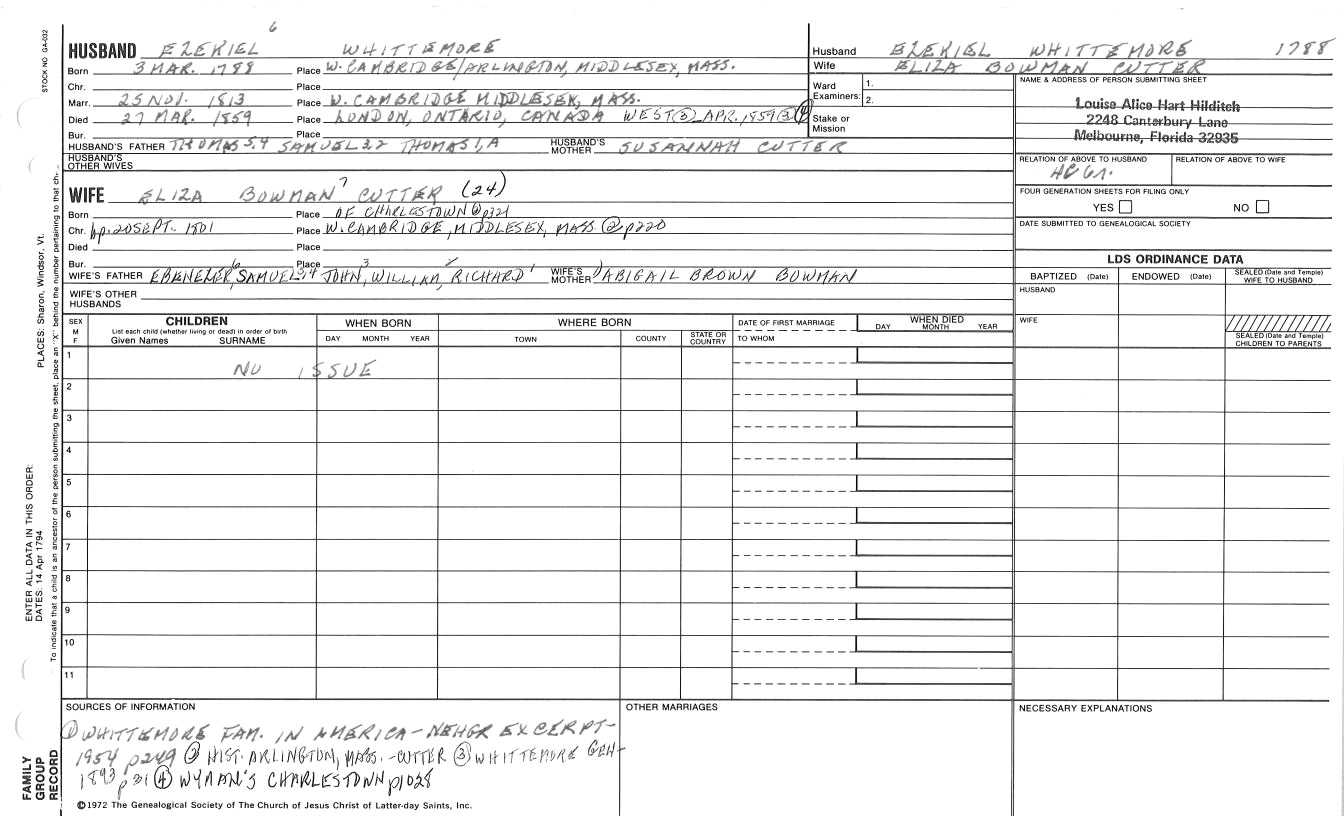 6
HUSBAND EZEKIEL WHITTEMORE
Born 3 MAR. 1788 Place W. CAMBRIDGE/ARLINGTON, MIDDLESEX, MASS.
Chr. Place
Marr. 25 NOV. 1813 Place W. CAMBRIDGE MIDDLESEX, MASS.
Died 27 MAR. 1859 Place LONDON, ONTARIO, CANADA WEST ③ APR. 1859 ③ ④
Bur. Place
HUSBAND'S FATHER THOMAS 5,4 SAMUEL 3,2 THOMAS 1,A HUSBAND'S MOTHER SUSANNAH CUTTER
HUSBAND'S OTHER WIVES
WIFE ELIZA BOWMAN 7 CUTTER (24)
Born Place OF CHARLESTOWN ④ p321
Chr. bp. 20 SEPT. 1801 Place W. CAMBRIDGE, MIDDLESEX, MASS ② p220
Died Place
Bur. Place
WIFE'S FATHER EBENEZER, 6 SAMUEL 5,4 JOHN, 3 WILLIAM, 2 RICHARD 1 WIFE'S MOTHER ABIGAIL BROWN BOWMAN
WIFE'S OTHER HUSBANDS
Husband EZEKIEL WHITTEMORE 1788
Wife ELIZA BOWMAN CUTTER
Ward 1.
Examiners: 2.
Stake or
Mission
NAME & ADDRESS OF PERSON SUBMITTING SHEET
Louise Alice Hart Hilditch
2248 Canterbury Lane
Melbourne, Florida 32935
RELATION OF ABOVE TO HUSBAND RELATION OF ABOVE TO WIFE
FOUR GENERATION SHEETS FOR FILING ONLY
YES NO
DATE SUBMITTED TO GENEALOGICAL SOCIETY
LDS ORDINANCE DATA
BAPTIZED (Date) ENDOWED (Date) SEALED (Date and Temple) WIFE TO HUSBAND
HUSBAND
WIFE
SEALED (Date and Temple) CHILDREN TO PARENTS
SEX M F
CHILDREN
List each child (whether living or dead) in order of birth
Given Names SURNAME
WHEN BORN
DAY MONTH YEAR
WHERE BORN
TOWN COUNTY STATE OR COUNTRY
DATE OF FIRST MARRIAGE
TO WHOM
WHEN DIED
DAY MONTH YEAR
1 NO ISSUE
2
3
4
5
6
7
8
9
10
11
SOURCES OF INFORMATION
① WHITTEMORE FAM. IN AMERICA-NEHGR EXCERPT-
1954 p249 ② HIST. ARLINGTON, MASS. -CUTTER ③ WHITTEMORE GEN-
1893 p31 ④ WYMAN'S CHARLESTOWN p1028
OTHER MARRIAGES
NECESSARY EXPLANATIONS
©1972 The Genealogical Society of The Church of Jesus Christ of Latter-day Saints, Inc.
STOCK NO GA-032
PLACES: Sharon, Windsor, Vt.
ENTER ALL DATA IN THIS ORDER:
DATES: 14 Apr 1794
To indicate that a child is an ancestor of the person submitting the sheet, place an "X" behind the number pertaining to that ch-
FAMILY
GROUP
RECORD